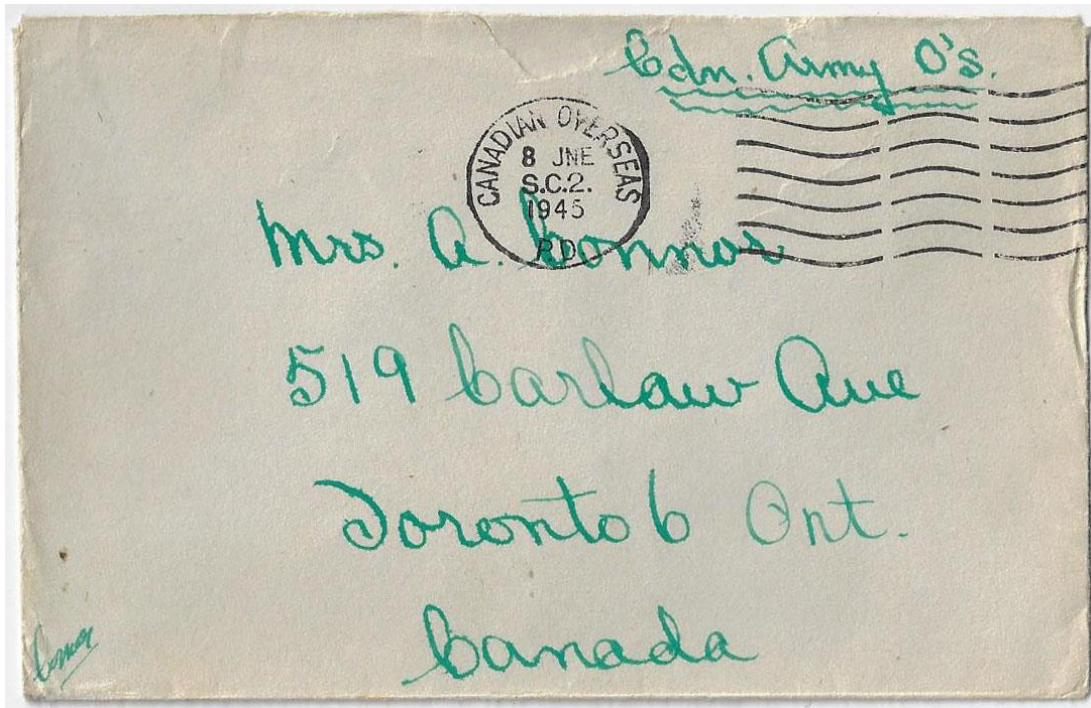 Cdn. Army O's.
CANADIAN OVERSEAS
8 JNE
S.C.2.
1945
P.D.
Mrs. A. Connor
519 Carlaw Ave
Toronto 6 Ont.
Canada